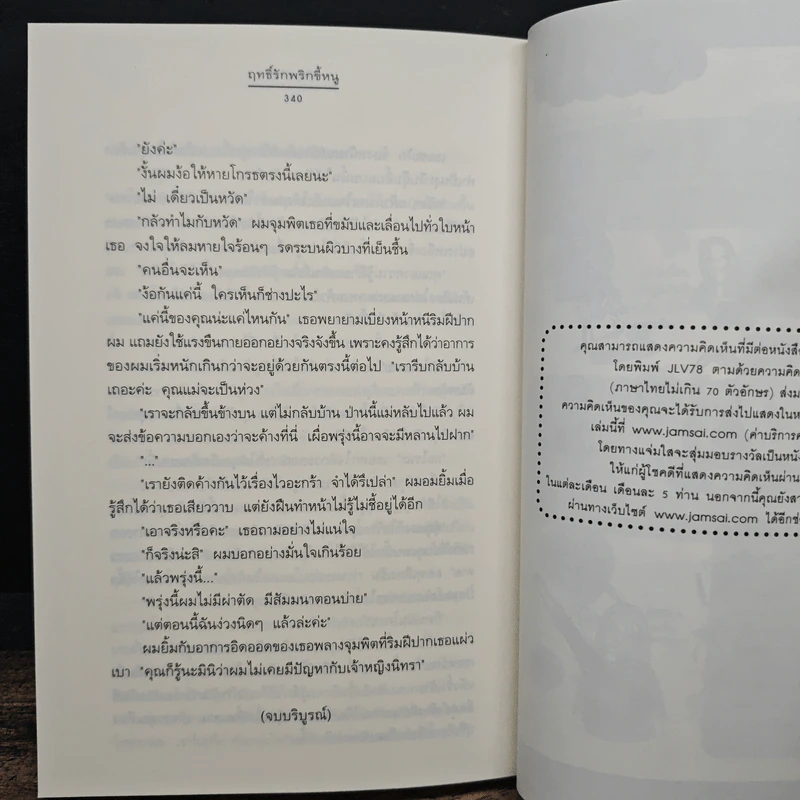 ฤทธิ์รักพริกขี้หนู
340
"ยังค่ะ"
"งั้นผมง้อให้หายโกรธตรงนี้เลยนะ"
"ไม่ เดี๋ยวเป็นหวัด"
"กลัวทำไมกับหวัด" ผมจุมพิตเธอที่ขมับและเลื่อนไปทั่วใบหน้า
เธอ จงใจให้ลมหายใจร้อนๆ รดระบนผิวบางที่เย็นชื้น
"คนอื่นจะเห็น"
"ง้อกันแค่นี้ ใครเห็นก็ช่างปะไร"
"แค่นี้ของคุณน่ะแค่ไหนกัน" เธอพยายามเบี่ยงหน้าหนีริมฝีปาก
ผม แถมยังใช้แรงขืนกายออกอย่างจริงจังขึ้น เพราะคงรู้สึกได้ว่าอาการ
ของผมเริ่มหนักเกินกว่าจะอยู่ด้วยกันตรงนี้ต่อไป "เรารีบกลับบ้าน
เถอะค่ะ คุณแม่จะเป็นห่วง"
"เราจะกลับขึ้นข้างบน แต่ไม่กลับบ้าน ป่านนี้แม่หลับไปแล้ว ผม
จะส่งข้อความบอกเองว่าจะค้างที่นี่ เผื่อพรุ่งนี้อาจจะมีหลานไปฝาก"
"..."
"เรายังติดค้างกันไว้เรื่องไวอะกร้า จำได้รึเปล่า" ผมอมยิ้มเมื่อ
รู้สึกได้ว่าเธอเสียววาบ แต่ยังฝืนทำหน้าไม่รู้ไม่ชี้อยู่ได้อีก
"เอาจริงหรือคะ" เธอถามอย่างไม่แน่ใจ
"ก็จริงน่ะสิ" ผมบอกอย่างมั่นใจเกินร้อย
"แล้วพรุ่งนี้..."
"พรุ่งนี้ผมไม่มีผ่าตัด มีสัมมนาตอนบ่าย"
"แต่ตอนนี้ฉันง่วงนิดๆ แล้วล่ะค่ะ"
ผมยิ้มกับอาการอิดออดของเธอพลางจุมพิตที่ริมฝีปากเธอแผ่ว
เบา "คุณก็รู้นะมินิว่าผมไม่เคยมีปัญหากับเจ้าหญิงนิทรา"
(จบบริบูรณ์)
คุณสามารถแสดงความคิดเห็นที่มีต่อหนังสือ
โดยพิมพ์ JLV78 ตามด้วยความคิด
(ภาษาไทยไม่เกิน 70 ตัวอักษร) ส่งม
ความคิดเห็นของคุณจะได้รับการส่งไปแสดงในห
เล่มนี้ที่ www.jamsai.com (ค่าบริการค
โดยทางแจ่มใสจะสุ่มมอบรางวัลเป็นหนัง
ให้แก่ผู้โชคดีที่แสดงความคิดเห็นผ่าน
ในแต่ละเดือน เดือนละ 5 ท่าน นอกจากนี้คุณยังสา
ผ่านทางเว็บไซต์ www.jamsai.com ได้อีกช่